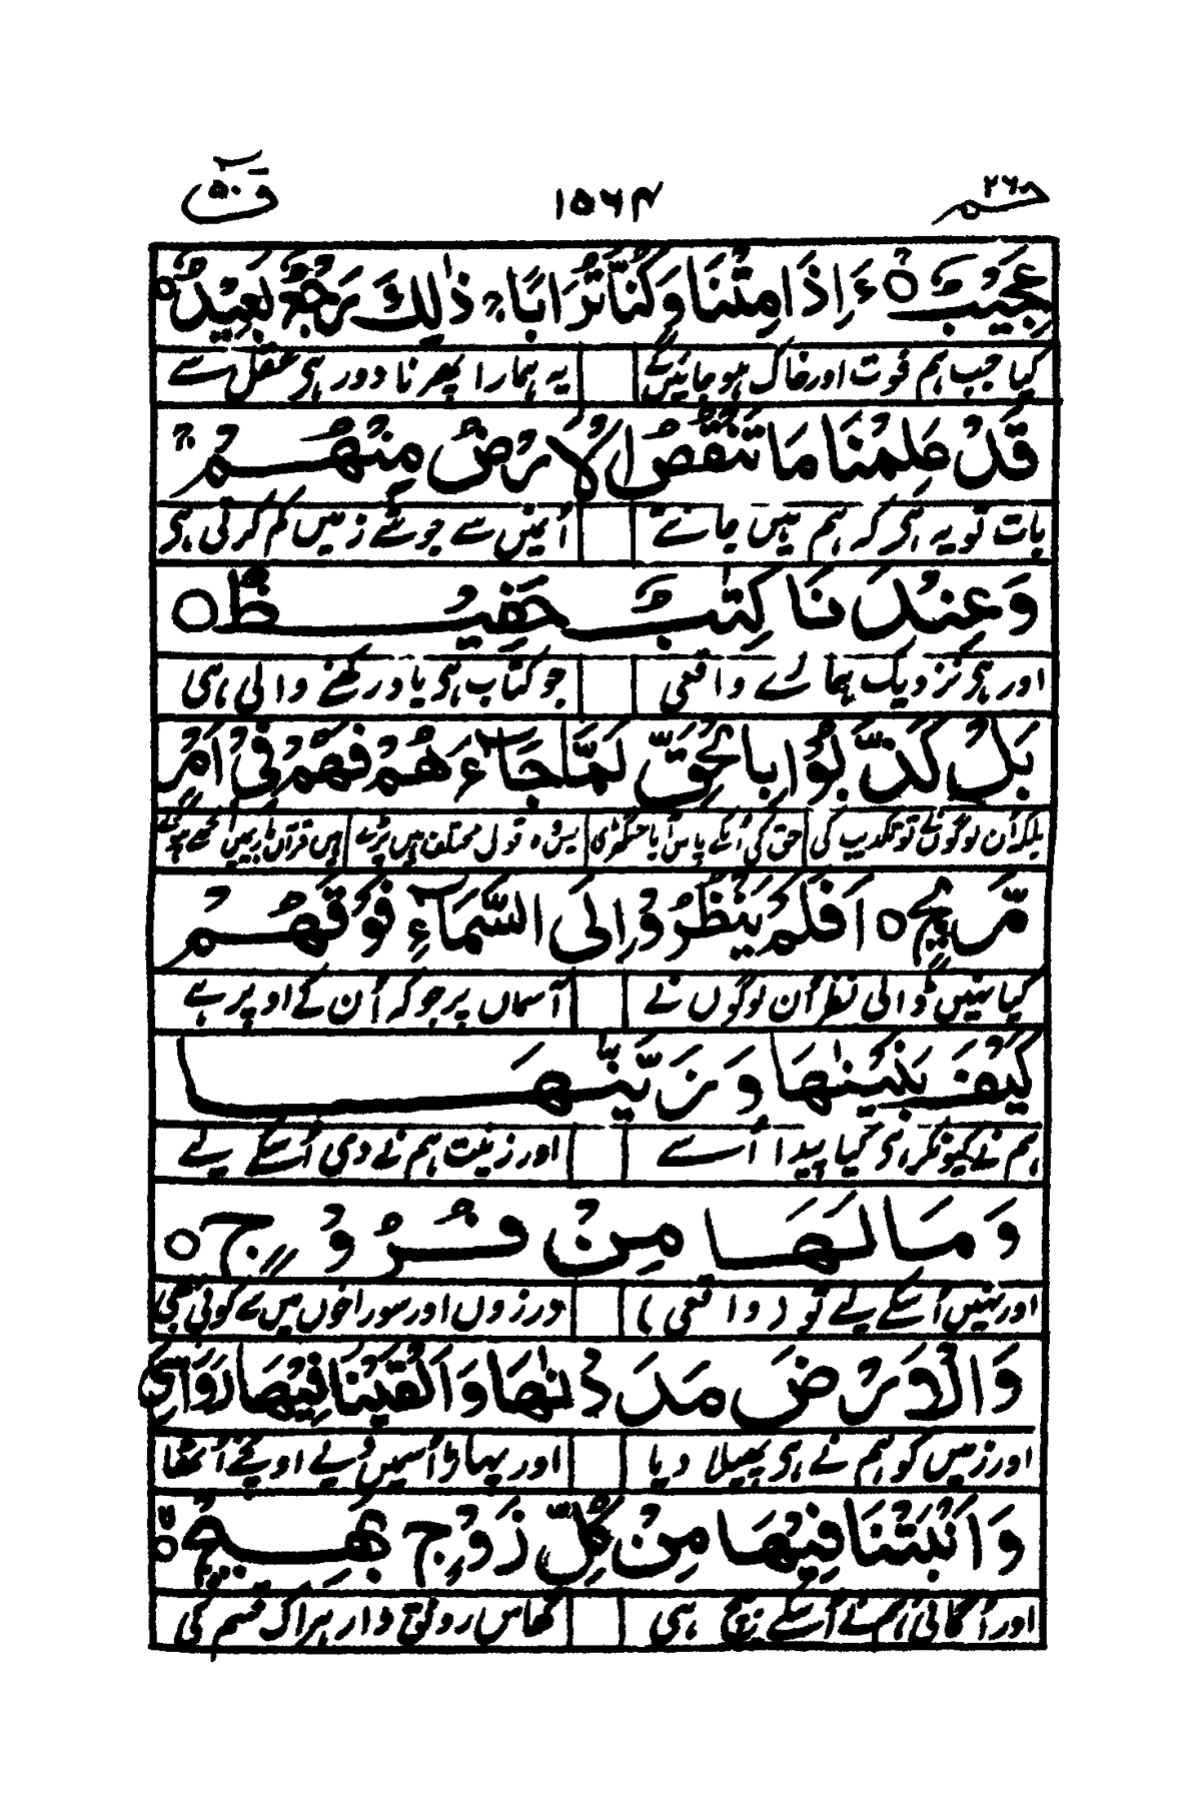 حٰمٓ ٢٦ ١٥٦٤ قٓ ٥٠
عَجِيْبٌ ○ ءَاِذَا مِتْنَا وَكُنَّا تُرَابًا ۚ ذٰلِكَ رَجْعٌۢ بَعِيْدٌ ○
کیا جب ہم فوت اور خاک ہو جائیں گے یہ ہمارا پھر نا دور ہی عقل سے
قَدْ عَلِمْنَا مَا تَنْقُصُ الْاَرْضُ مِنْهُمْ ۚ
بات تو یہ ہی کہ ہم ہیں جانتے اُنمیں سے جوشے زمیں کم کرتی ہی
وَعِنْدَنَا كِتٰبٌ حَفِيْظٌ ○
اور ہی نزدیک ہمارے واقعی جو کتاب ہی یاد رکھنے والی ہی
بَلْ كَذَّبُوْا بِالْحَقِّ لَمَّا جَآءَهُمْ فَهُمْ فِيْ اَمْرٍ
بلکہ اُن لوگوں نے تو تکذیب کی حق کی اُنکے پاس آیا جس گھڑی قول مختلف ہیں پڑے
مَّرِيْجٍ ○ اَفَلَمْ يَنْظُرُوْا اِلَى السَّمَآءِ فَوْقَهُمْ
کیا نہیں ڈالی نظر اُن لوگوں نے آسماں پر جو کہ اُن کے اوپر ہے
كَيْفَ بَنَيْنٰهَا وَزَيَّنّٰهَا
ہم نے کیونکر ہی کیا پیدا اُسے اور زینت ہم نے دی اُسکے لیے
وَمَا لَهَا مِنْ فُرُوْجٍ ○
اور نہیں اُسکے لیے تو (واقعی) درزوں اور سوراخوں میں سے کوئی بھی
وَالْاَرْضَ مَدَدْنٰهَا وَاَلْقَيْنَا فِيْهَا رَوَاسِيَ
اور زمیں کو ہم نے ہی پھیلا دیا اور پہاڑ اُسمیں دیے اونچے اُٹھا
وَاَنْۢبَتْنَا فِيْهَا مِنْ كُلِّ زَوْجٍۢ بَهِيْجٍ ○
اور اُگائی ہم نے اُسکے بیچ ہی گھاس رونق دار ہر اک قسم کی